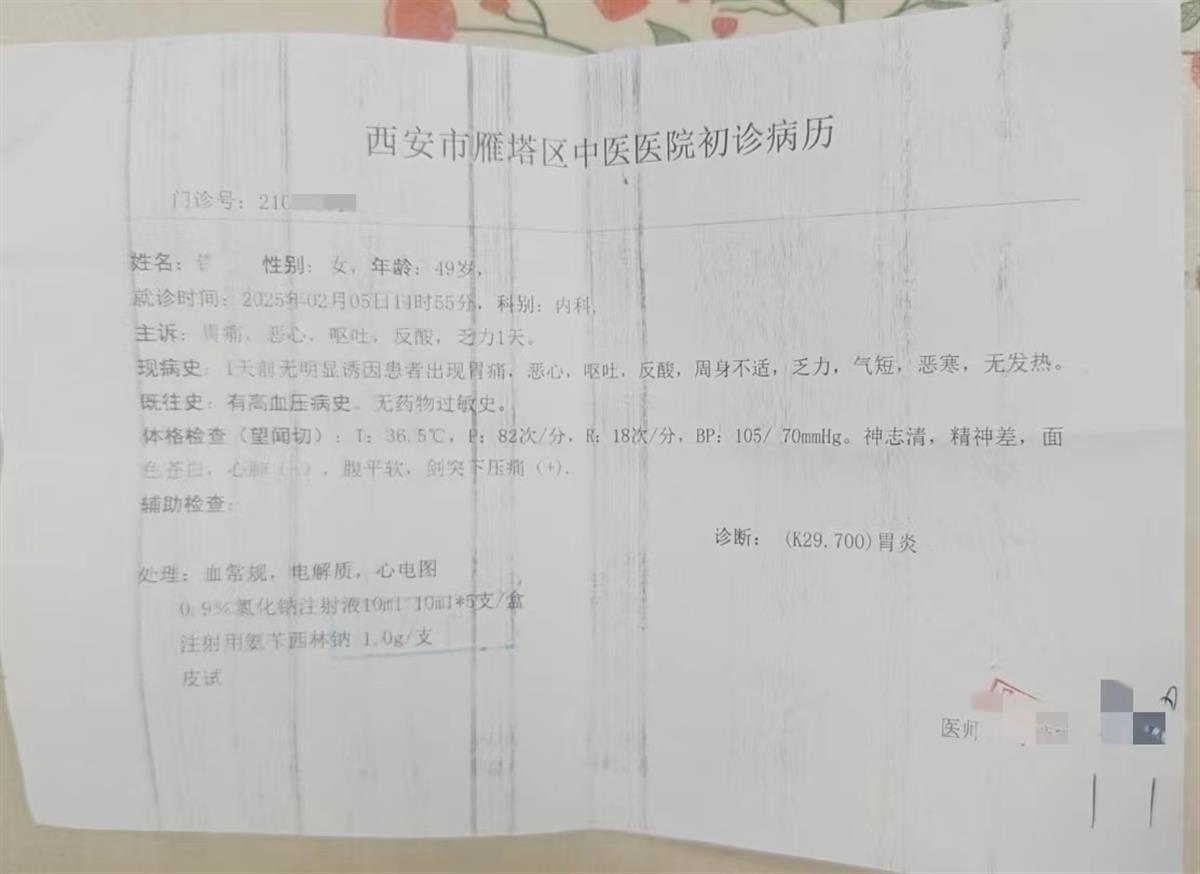 西安市雁塔区中医医院初诊病历
门诊号：210
姓名： 性别：女，年龄：49岁，
就诊时间：2025年02月05日14时55分，科别：内科，
主诉：胃痛，恶心，呕吐，反酸，乏力1天。
现病史：1天前无明显诱因患者出现胃痛，恶心，呕吐，反酸，周身不适，乏力，气短，恶寒，无发热。
既往史：有高血压病史，无药物过敏史。
体格检查（望闻切）：T：36.5℃，P：82次/分，R：18次/分，BP：105/ 70mmHg。神志清，精神差，面
色苍白，心肺（-），腹平软，剑突下压痛（+）.
辅助检查：
诊断：（K29.700)胃炎
处理：血常规，电解质，心电图
0.9%氯化钠注射液10ml 10ml*5支/盒
注射用氨苄西林钠 1.0g/支
皮试
医师